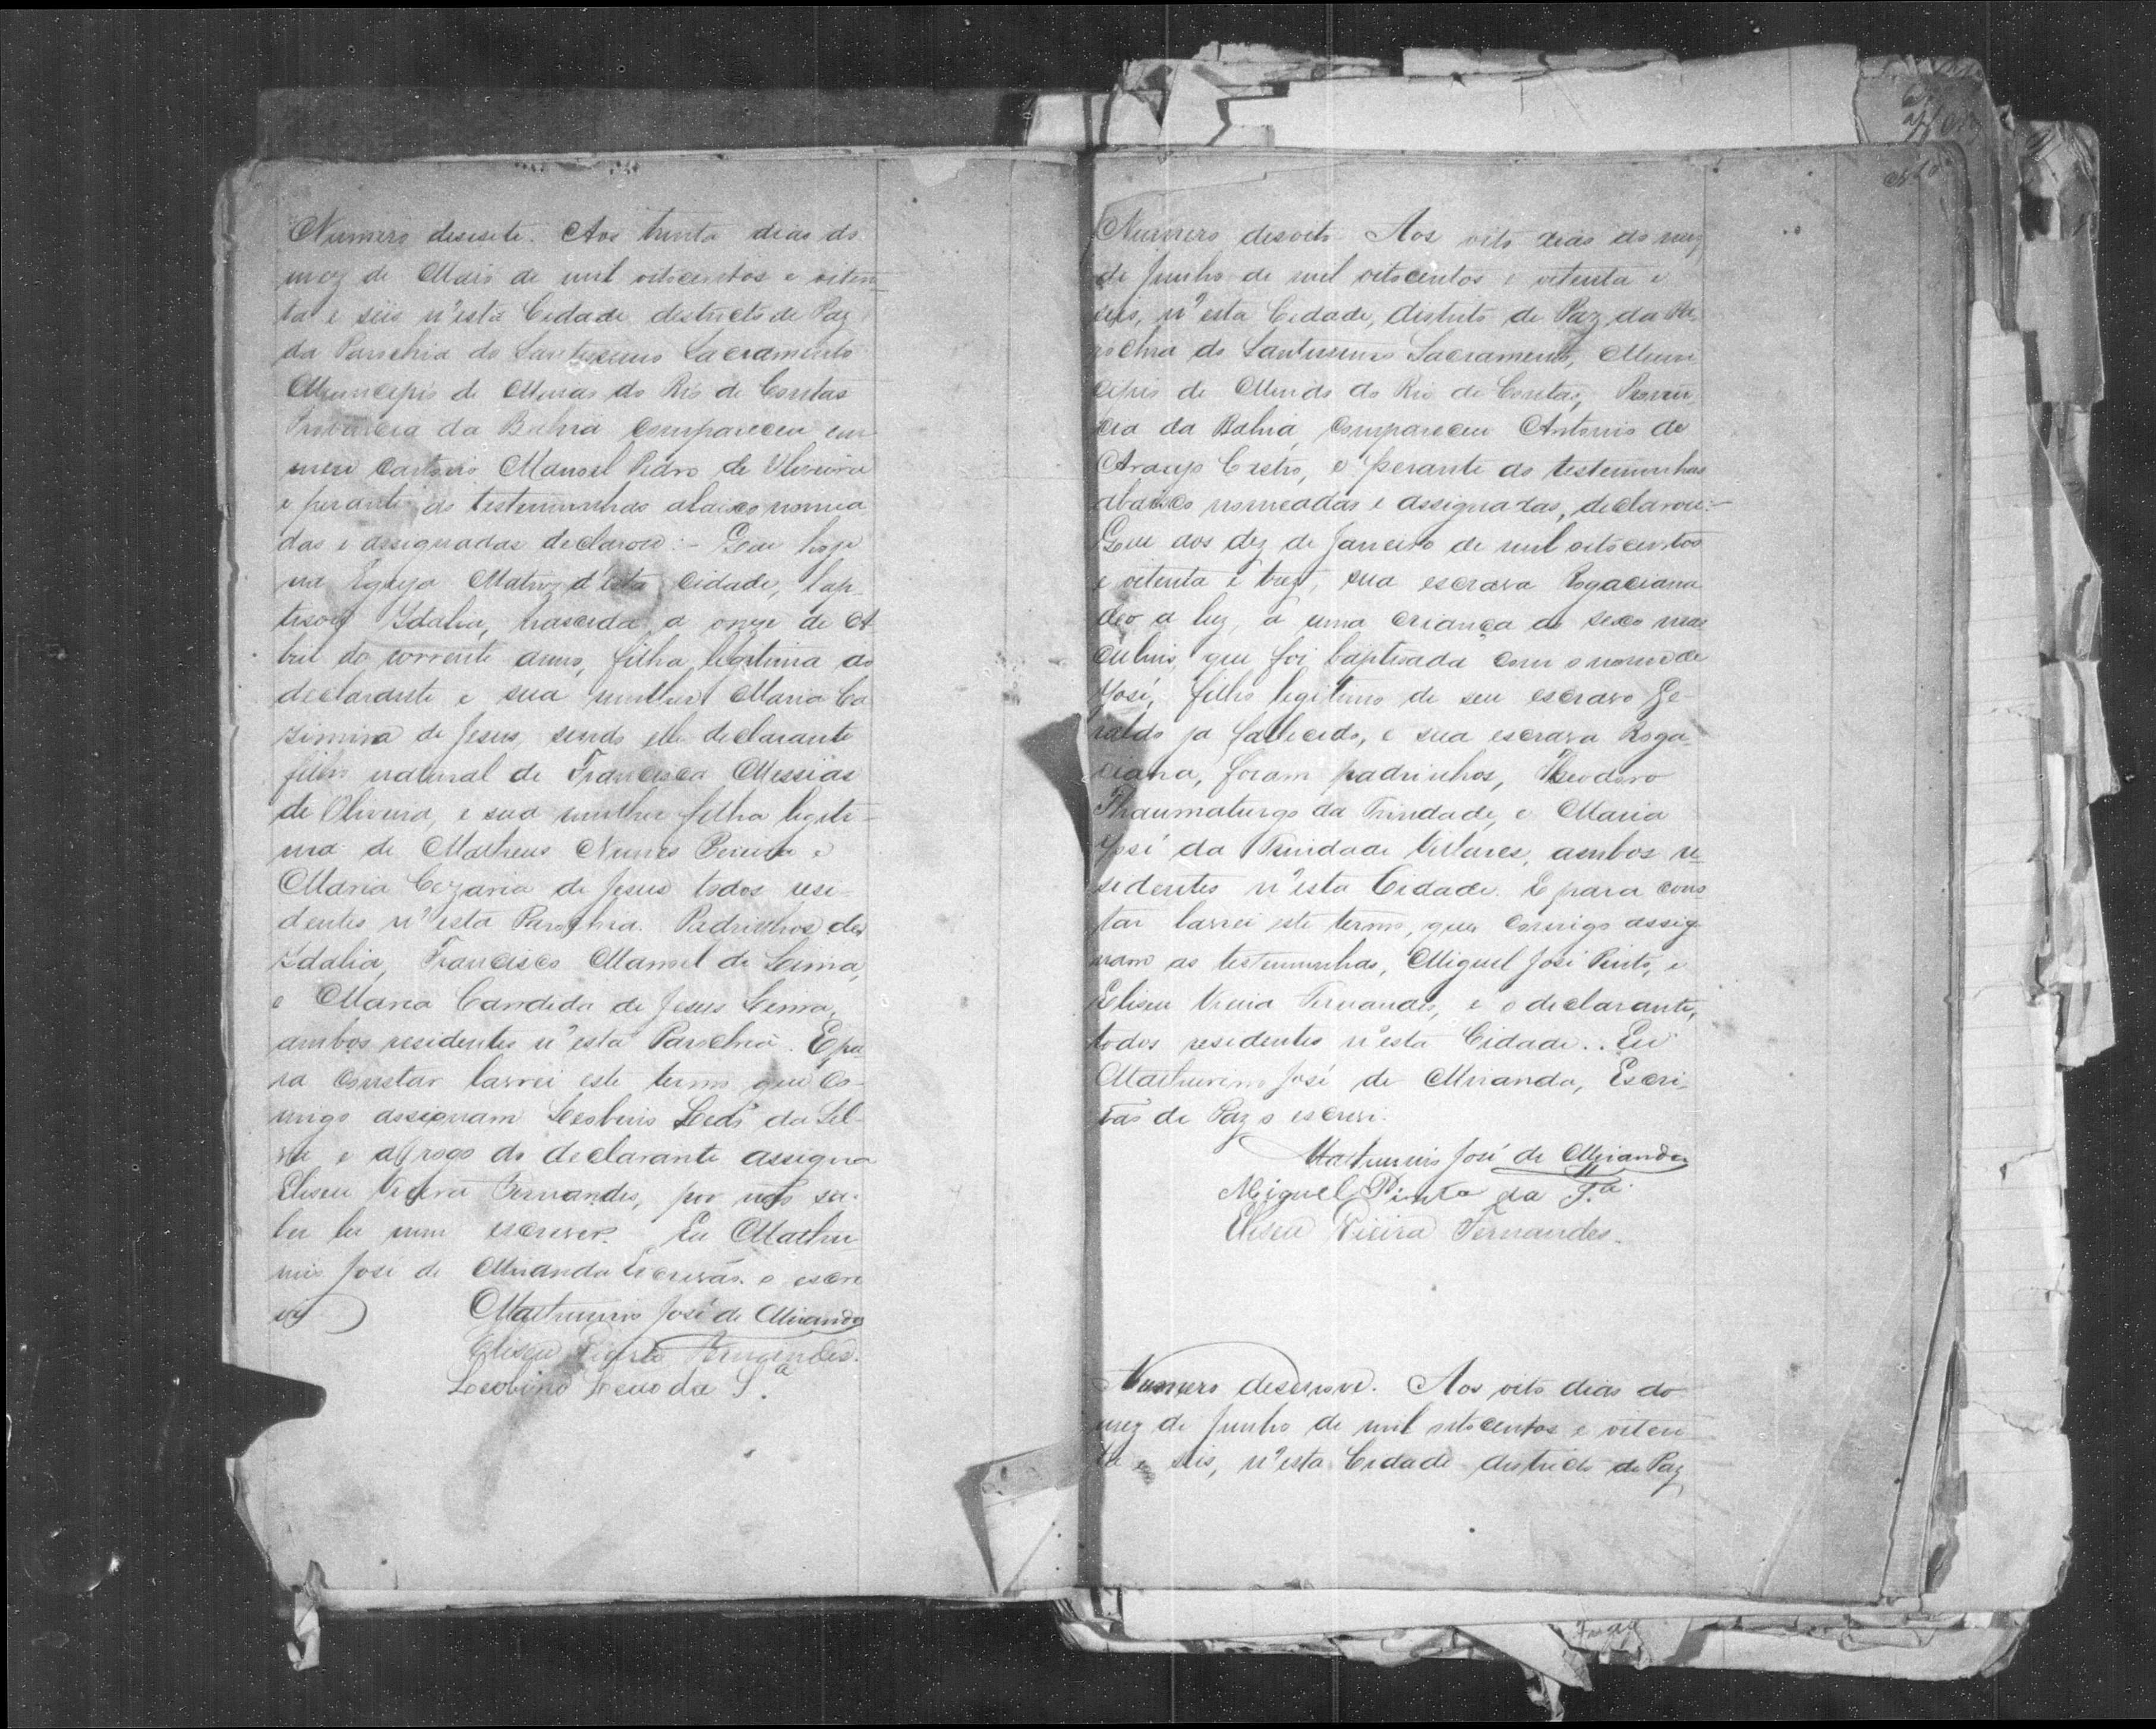 Numero desesete. Aos trinta dias do
mez de Maio de mil oitocentos e oiten-
ta e seis n'esta Cidade destricto de Paz
da Parochia do Santissimo Sacramento
Municipio de Minas do Rio de Contas
Provincia da Bahia compareceu em
meu Cartorio Manoel Pedro de Oliveira
e perante as testemunhas abaixo nomea
das e assignadas declarou:- Que hoje
na Egreja Matriz d'esta Cidade, bap-
tisou Idalia, nascida a onze de A-
bril do corrente anno, filha legitima do
declarante e sua mulher Maria Ca
zimira de Jesus, sendo elle declarante
filho natural de Francisca Messias
de Oliveira, e sua mulher filha legiti-
ma de Matheus Nunes Pereira e
Maria Cezaria de Jesus todos resi-
dentes n'esta Parochia. Padrinhos de
Idalia, Francisco Manoel de Lima,
e Maria Candida de Jesus Lima,
ambos residentes n'esta Parochia. E pa
ra constar lavrei este termo que co-
migo assignam Leobino da Sil-
va e a rogo do declarante assigna
Eliseu Vieira Fernandes, por não sa-
ber ler nem escrever. Eu Mathu
rino José de Miranda Escrivão o escre
vi
Mathurino José de Miranda
Eliseu Vieira Fernandes.
Leobino da S.a
Numero desoito Aos oito dias do mez
de Junho de mil oitocentos e oitenta e
seis, n'esta Cidade, distrito de Paz da Pa
rochia do Santissimo Sacramento, Muni
cipio de Minas do Rio de Contas, Provin
cia da Bahia, compareceu Antonio de
Araujo Castro, e perante as testemunhas
abaixo nomeadas e assignadas, declarou:-
Que aos dez de Janeiro de mil oitocentos
e oitenta e trez, sua escrava Rogaciana
deo a luz, a uma criança do sexo mas
culino, que foi baptisada com o nome de
José, filho legitimo de seu escravo Ge-
raldo ja fallecido, e sua escrava Roga-
ciana, foram padrinhos, Theodoro
Thaumaturgo da Trindade, e Maria
José da Trindade ambos re-
sidentes n'esta Cidade. E para cons
tar lavrei este termo, que comigo assig
nam as testemunhas, Miguel José Pinto, e
Eliseu Vieira Fernandes, e o declarante,
todos residentes n'esta Cidade. Eu
Mathurino José de Miranda, Escri-
vão de Paz o escrevi.
Mathurino José de Miranda
Miguel Pinto da S.a
Eliseu Vieira Fernandes.
Numero desenove. Aos oito dias do
mez de Junho de mil oitocentos e oiten
ta e seis, n'esta Cidade districto de Paz